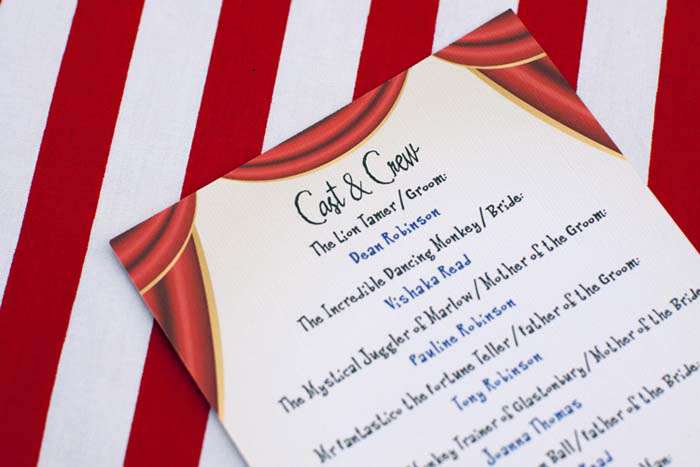 Cast & Crew
The Lion Tamer/Groom:
Dean Robinson
The Incredible Dancing Monkey/Bride:
Vishaka Read
The Mystical Juggler of Marlow/Mother of the Groom:
Pauline Robinson
Mrfantastico the Fortune Teller/Father of the Groom:
Tony Robinson
Monkey Trainer of Glastonbury/Mother of the Bride:
Joanna Thomas
Ball/Father of the Bride:
Read